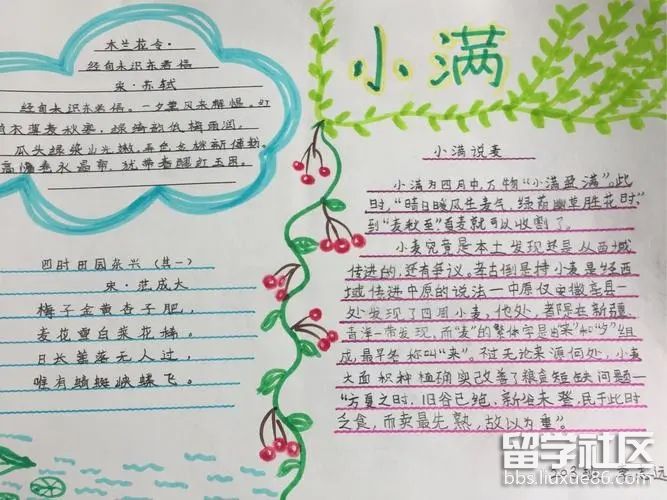 木兰花令·
经旬未识东君信
宋·苏轼
经旬未识东君信。一夕薰风来解愠。红
绡衣薄麦秋寒，绿绮韵低梅雨润。
瓜头绿染山光嫩。弄色金桃新傅粉。
日高慵卷水晶帘，犹带春醪红玉困。
四时田园杂兴（其一）
宋·范成大
梅子金黄杏子肥，
麦花雪白菜花稀。
日长篱落无人过，
唯有蜻蜓蛱蝶飞。
小满
小满说麦
小满为四月中，万物“小满盈满”。此
时，“晴日暖风生麦气，绿荫幽草胜花时”，
到“麦秋至”首麦就可以收割了。
小麦究竟是本土发现还是从西域
传进的，还有争议。考古倒是持小麦是经西
域传进中原的说法一中原仅安徽亳县一
处发现了四周小麦，他处，都限在新疆
青洋一带发现，而“麦”的繁体字是由“来”和“夕”组
成，最早老称叫“来”。不过无论来源何处，小麦
大面积种植确实改善了粮食短缺问题一
“方夏之时，旧谷已绝，新谷未登，民于此时
乏食，而麦最先熟，故以为重”。
503班
留学社区
bbs.liuxue86.com